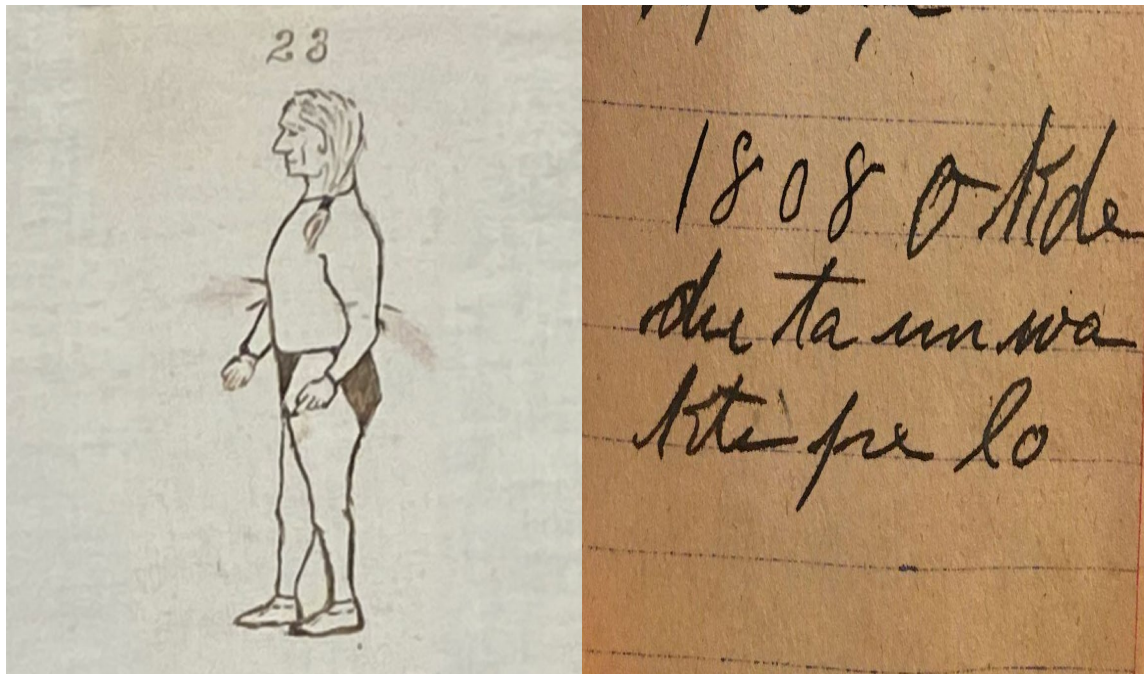 23
1808 o kde
du ta un wa
kte pe lo